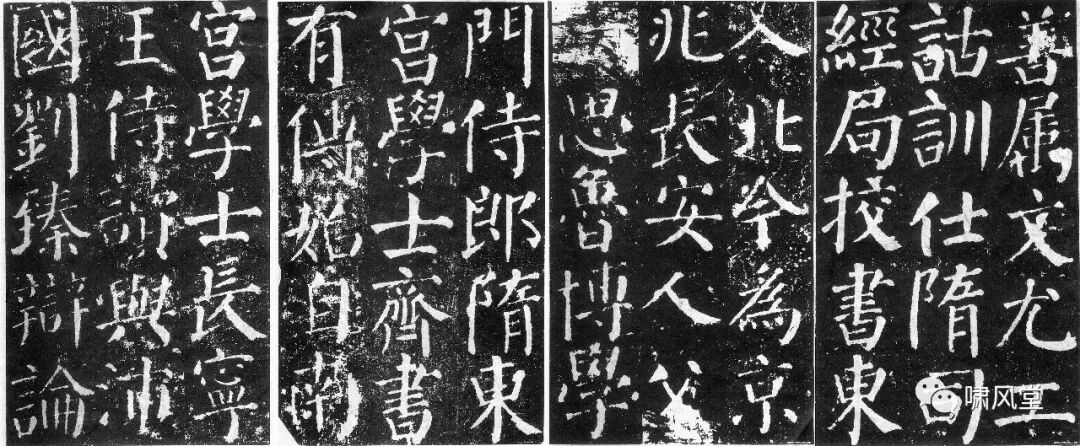 善属文尤工
詁訓仕隋司
經局挍書東
入北今為京
兆長安人父
思魯博學
門侍郎隋東
宮學士齊書
有傳始自南
宮學士長寧
王侍讀與沛
國劉臻辯論
啸风堂